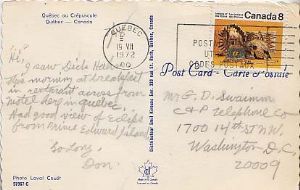 Québec au Crépuscule
Québec — Canada
Hi,
I saw Dick Ham
this morning at breakfast
in restaurant across from
motel here in Quebec.
Had good view of Eclipse
from Prince Edward Island
So-long,
Don.
Photo Laval Couët
QUEBEC
19 VII
1972
Canada 8
POST
CODES
Post Card - Carte Postale
Mr G. D. Swaimm
C&P Telephone Co
1700 14 St NW,
Washington, D.C,
20009